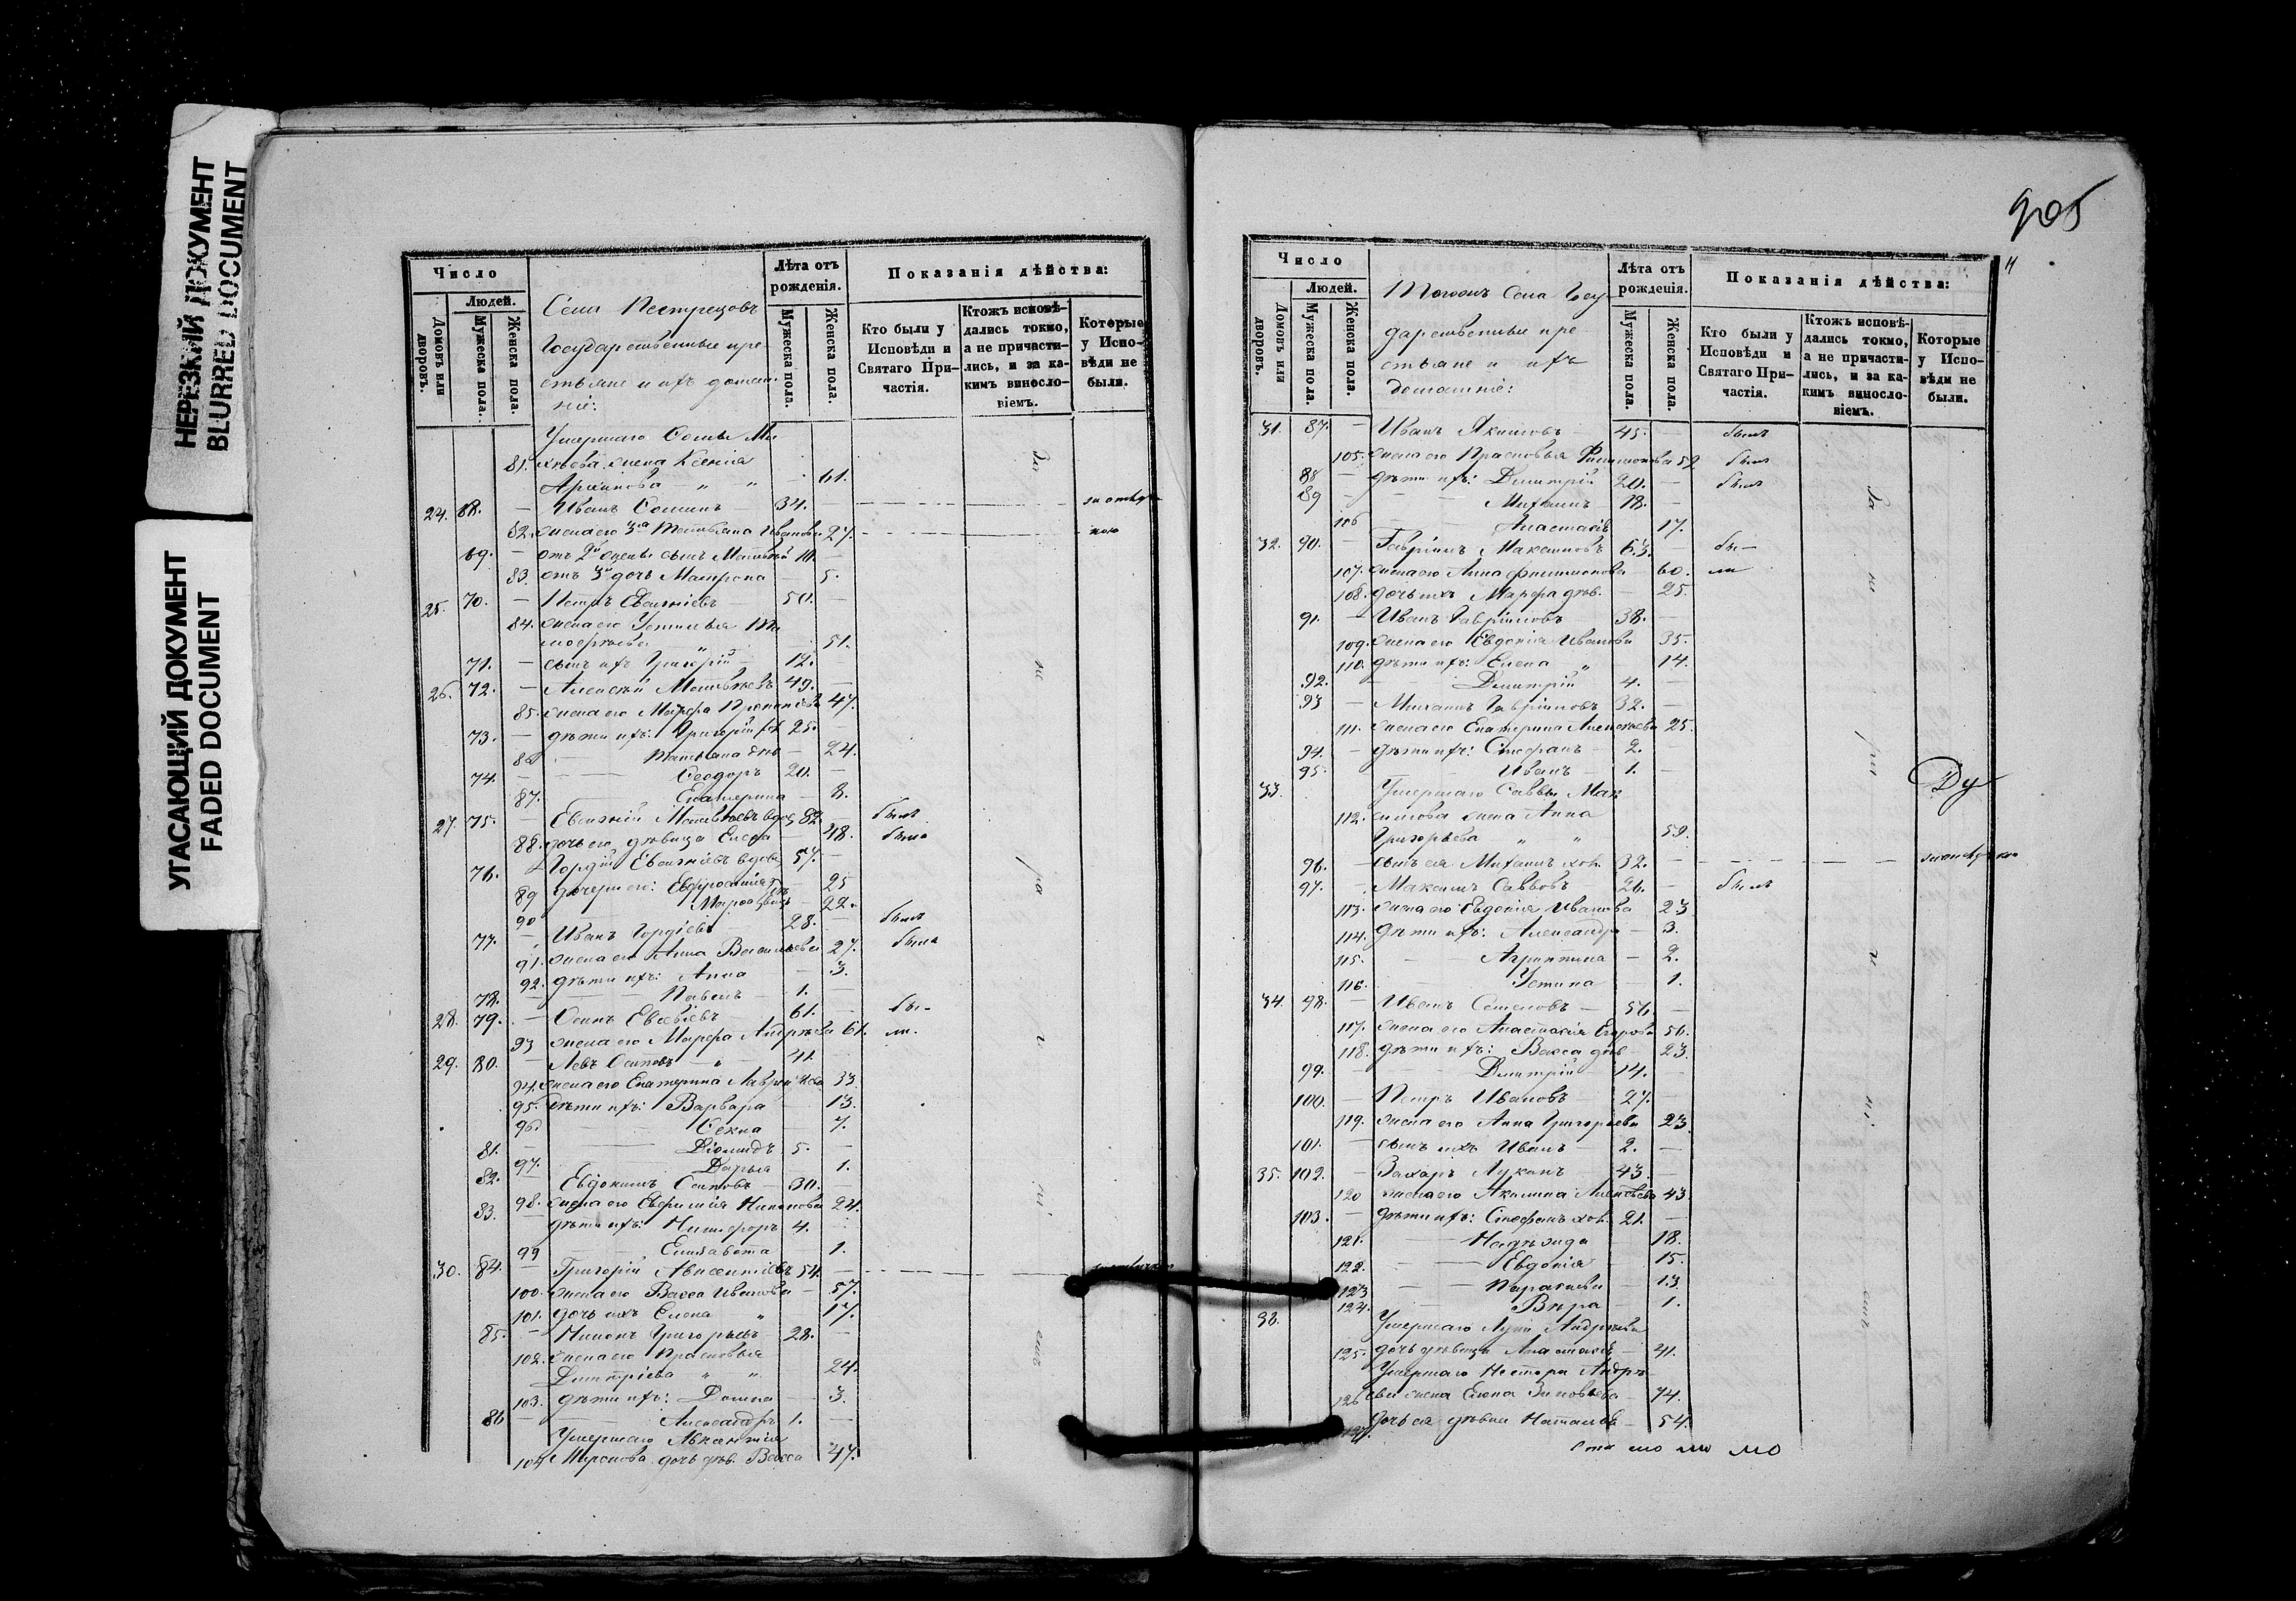 НЕРЕЗКИЙ ДОКУМЕНТ
BLURRED DOCUMENT
УГАСАЮЩИЙ ДОКУМЕНТ
FADED DOCUMENT
Число
Людей.
Домовъ или дворовъ.
Мужеска пола.
Женска пола.
Села Пестрецовъ
Государственные кре
стьяне и ихъ домаш
ніе:
Лѣта отъ рожденія.
Мужеска пола.
Женска пола.
Показанія дѣйства:
Кто были у Исповѣди и Святаго При-частія.
Ктожъ исповѣ-дались токмо, а не причасти-лись, и за ка-кимъ винослo-віемъ.
Которые у Испо-вѣди не были.
Умершаго
81. жена Ксенія
Архипова " " — 61.
24. 68. — Иванъ — 34.
82. жена его 3я Татьяна Иванова 27.
69. — отъ 2й жены сынъ Матвѣй 10. —
83. отъ 3й дочь Матрона — 5.
25. 70. — Петръ Евсигніевъ 50. —
84. жена его Устинья Ти
моѳеева " 51.
71. — сынъ ихъ Григорій 12. —
26. 72. — Алексѣй Матвѣевъ 49. —
85. жена его Марѳа 47.
73. — дѣти ихъ: Григорій 25. —
86 Татьяна — 24.
74. — Ѳеодоръ 20. —
87. Екатерина — 8.
27. 75. — Евсигній Матвѣевъ вдов 82. — былъ
88. дочь его дѣвица Елена — 48. была
76. Гордій Евсигніевъ вдовъ 57. —
89 дочери его: Евфросинія — 25
90 — 22.
77. — Иванъ Гордіевъ 28. — былъ
91. жена его Анна Васильева 27. была
92. дѣти ихъ: Анна — 3.
78. — Павелъ 1. —
28. 79. — Осипъ Евсѣевъ 61. — бы-
93 жена его Марѳа Андрѣева 61. ли.
29. 80. — Левъ Осиповъ " 41.
94. жена его Екатерина 33.
95. дѣти ихъ: Варвара — 13.
96. Ѳекла — 7.
81. Діомидъ 5. —
97. Дарья 1.
82. Евдокимъ Осиповъ 30. —
98. жена его Евфимія 24.
83. — дѣти ихъ: Никифоръ 4.
99 Елизавета 1.
30. 84. — Григорій Авксентіевъ 54. —
100. жена его Васса Иванова — 57.
101. дочь ихъ Елена " 17.
85. — Никонъ Григорьевъ 28. —
102. жена его Прасковья
Дмитріева " " 24.
103. дѣти ихъ: Домна — 3.
86 — Александръ 1. —
Умершаго Авксентія
104 Миронова дочь дѣв. Васса 47.
905
Число
Людей.
Домовъ или дворовъ.
Мужеска пола.
Женска пола.
Тогожъ Села Госу
дарственные кре
стьяне и ихъ
домашніе:
Лѣта отъ рожденія.
Мужеска пола.
Женска пола.
Показанія дѣйства:
Кто были у Исповѣди и Святаго При-частія.
Ктожъ исповѣ-дались токмо, а не причасти-лись, и за ка-кимъ винослo-віемъ.
Которые у Испо-вѣди не были.
31. 87. — Иванъ Якимовъ 45. — былъ
105. жена его Прасковья Филимонова 52
88 — дѣти ихъ: Дмитрій 20. —
89 — Михаилъ — 18. —
106 Анастасія — 17.
32. 90. — Гавріилъ Максимовъ 63. — бы-
107. жена его Анна Филимонова — 60. ли
108. дочь ихъ Марѳа дѣв. — 25.
91. — Иванъ Гавріиловъ 38. —
109. жена его Евдокія Иванова 35.
110. дѣти ихъ: Елена " 14.
92. — Дмитрій 4. —
93 — Михаилъ Гавріиловъ 32. —
111. жена его Екатерина Алексѣева 25.
94. — дѣти ихъ: Стефанъ — 2. —
95. — Иванъ — 1. —
33. Умершаго Саввы Мак
112. симова жена Анна
Григорьева " " 59.
96. — сынъ ея Михаилъ хол. 32. —
97. — Максимъ Саввовъ 26. — былъ
113. жена его Евдокія Иванова 23
114. дѣти ихъ: Александра — 3.
115. Агриппина — 2.
116. Устина — 1.
34. 98. — Иванъ Семеновъ — 56. —
117. жена его Анастасія Егорова 56.
118. дѣти ихъ: Васса дѣв — 23
99. Дмитрій 14. —
100. — Петръ Ивановъ — 27. —
119. жена его Анна Григорьева 23
101. — сынъ ихъ Иванъ — 2. —
35. 102. — Захаръ Лукинъ — 43. —
120 жена его Акилина 43
103. — дѣти ихъ: Стефанъ хол. 21. —
121. Надежда 18.
122. Евдокія — 15.
123 Параскева — 13
124. Вѣра — 1.
Умершаго Луки Андрѣева
125. дочь дѣвица Анастасія — 41.
Умершаго Нестора Андрѣ-
126 ева жена Елена Зиновьева — 74.
127. дочь ея дѣвка Наталья — 54.